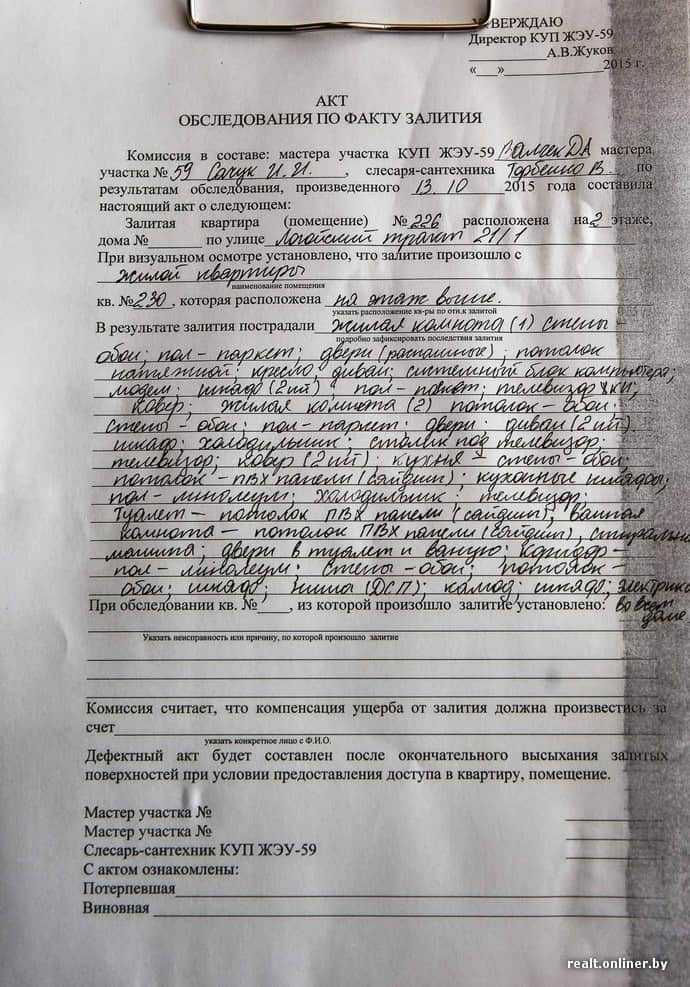 УТВЕРЖДАЮ
Директор КУП ЖЭУ-59
____________А.В.Жуков
«___»_______________2015 г.
АКТ
ОБСЛЕДОВАНИЯ ПО ФАКТУ ЗАЛИТИЯ
Комиссия в составе: мастера участка КУП ЖЭУ-59 ДА мастера,
участка № 59 Сачук И.И. , слесаря-сантехника В. по
результатам обследования, произведенного 13.10 2015 года составила
настоящий акт о следующем:
Залитая квартира (помещение) № 226 расположена на 2 этаже,
дома №_______ по улице Логойский тракт 21/1
При визуальном осмотре установлено, что залитие произошло с
жилой квартиры
наименование помещения
кв. № 230 , которая расположена на этаж выше.
указать расположение кв-ры по отн.к залитой
В результате залития пострадали жилая комната (1) стены -
подробно зафиксировать последствия залития
обои; пол - паркет; двери (распашные); потолок
натяжной; кресло; диван; системный блок компьютера;
модем; шкаф (2шт); пол - паркет; телевизор ЖКИ;
ковер; жилая комната (2) потолок - обои;
стены - обои; пол - паркет; двери; диван (2шт).
шкаф; холодильник; столик под телевизор;
телевизор; ковер (2шт); кухня - стены - обои;
потолок - ПВХ панели (сайдинг); кухонные шкафы;
пол - линолеум; холодильник; телевизор;
туалет - потолок ПВХ панели (сайдинг), ванная
комната - потолок ПВХ панели (сайдинг), стиральн
машина; двери в туалет и ванную; коридор -
пол - линолеум; стены - обои; потолок -
обои; шкаф; ниша (ДСП); комод; шкаф; электрика
При обследовании кв. №____, из которой произошло залитие установлено: во всем
доме
Указать неисправность или причину, по которой произошло залитие
Комиссия считает, что компенсация ущерба от залития должна произвестись за
счет
указать конкретное лицо с Ф.И.О.
Дефектный акт будет составлен после окончательного высыхания залитых
поверхностей при условии предоставления доступа в квартиру, помещение.
Мастер участка №
Мастер участка №
Слесарь-сантехник КУП ЖЭУ-59
С актом ознакомлены:
Потерпевшая
Виновная
realt.onliner.by